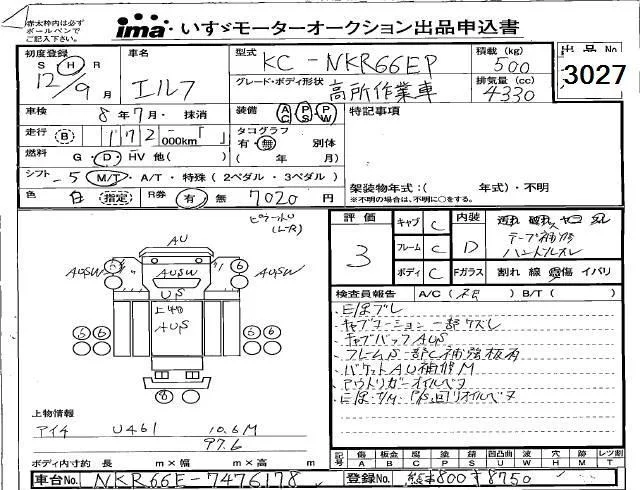 赤太枠内は必ず
ボールペンで
ご記入下さい。
ima いすゞモーターオークション出品申込書
初度登録 車名 型式 KC-NKR66EP 積載 (kg) 500 出品No
S H R 12/9月 エルフ グレード・ボディ形状 高所作業車 排気量 (cc) 4330 3027
車検 8年7月・抹消 装備 AC PS PW 特記事項
走行 B 172,000km「 」 タコグラフ 有・無 別体
燃料 G・D・HV 他( ) ( 年 月)
シフト -5 M/T・A/T・特殊(2ペダル・3ペダル) 架装物年式:( 年式)・不明
色 白 指定 R券 有 無 7020 円 ※不明の場合は、不明に○をする。
評価 キャブ C 内装
3 フレーム C D テープ補修
ボディ C Fガラス 割れ 線 傷 イバリ
(L-R)
AU
AUSW AUSW AUSW
UPS
AUS
6 6
6 6 6 6
8
検査員報告 A/C( ) B/T( )
E/Gブレ
キャブコーション一部クズレ
キャブバックAUS
フレームS一部C補強板有
バケットAU補修M
アウトリガーオイルベタ
E/G・T/M・P/S回りオイルベタ
上物情報
アイチ U461 10.6M
97.6
ボディ内寸約 長 m×幅 m×高 m
記号 傷A 凹B 腐C 塗P 錆S 凹凸曲U 波W 穴H 跡M レツ割T
車台No. NKR66E-7476178 登録No. 熊本800す8750